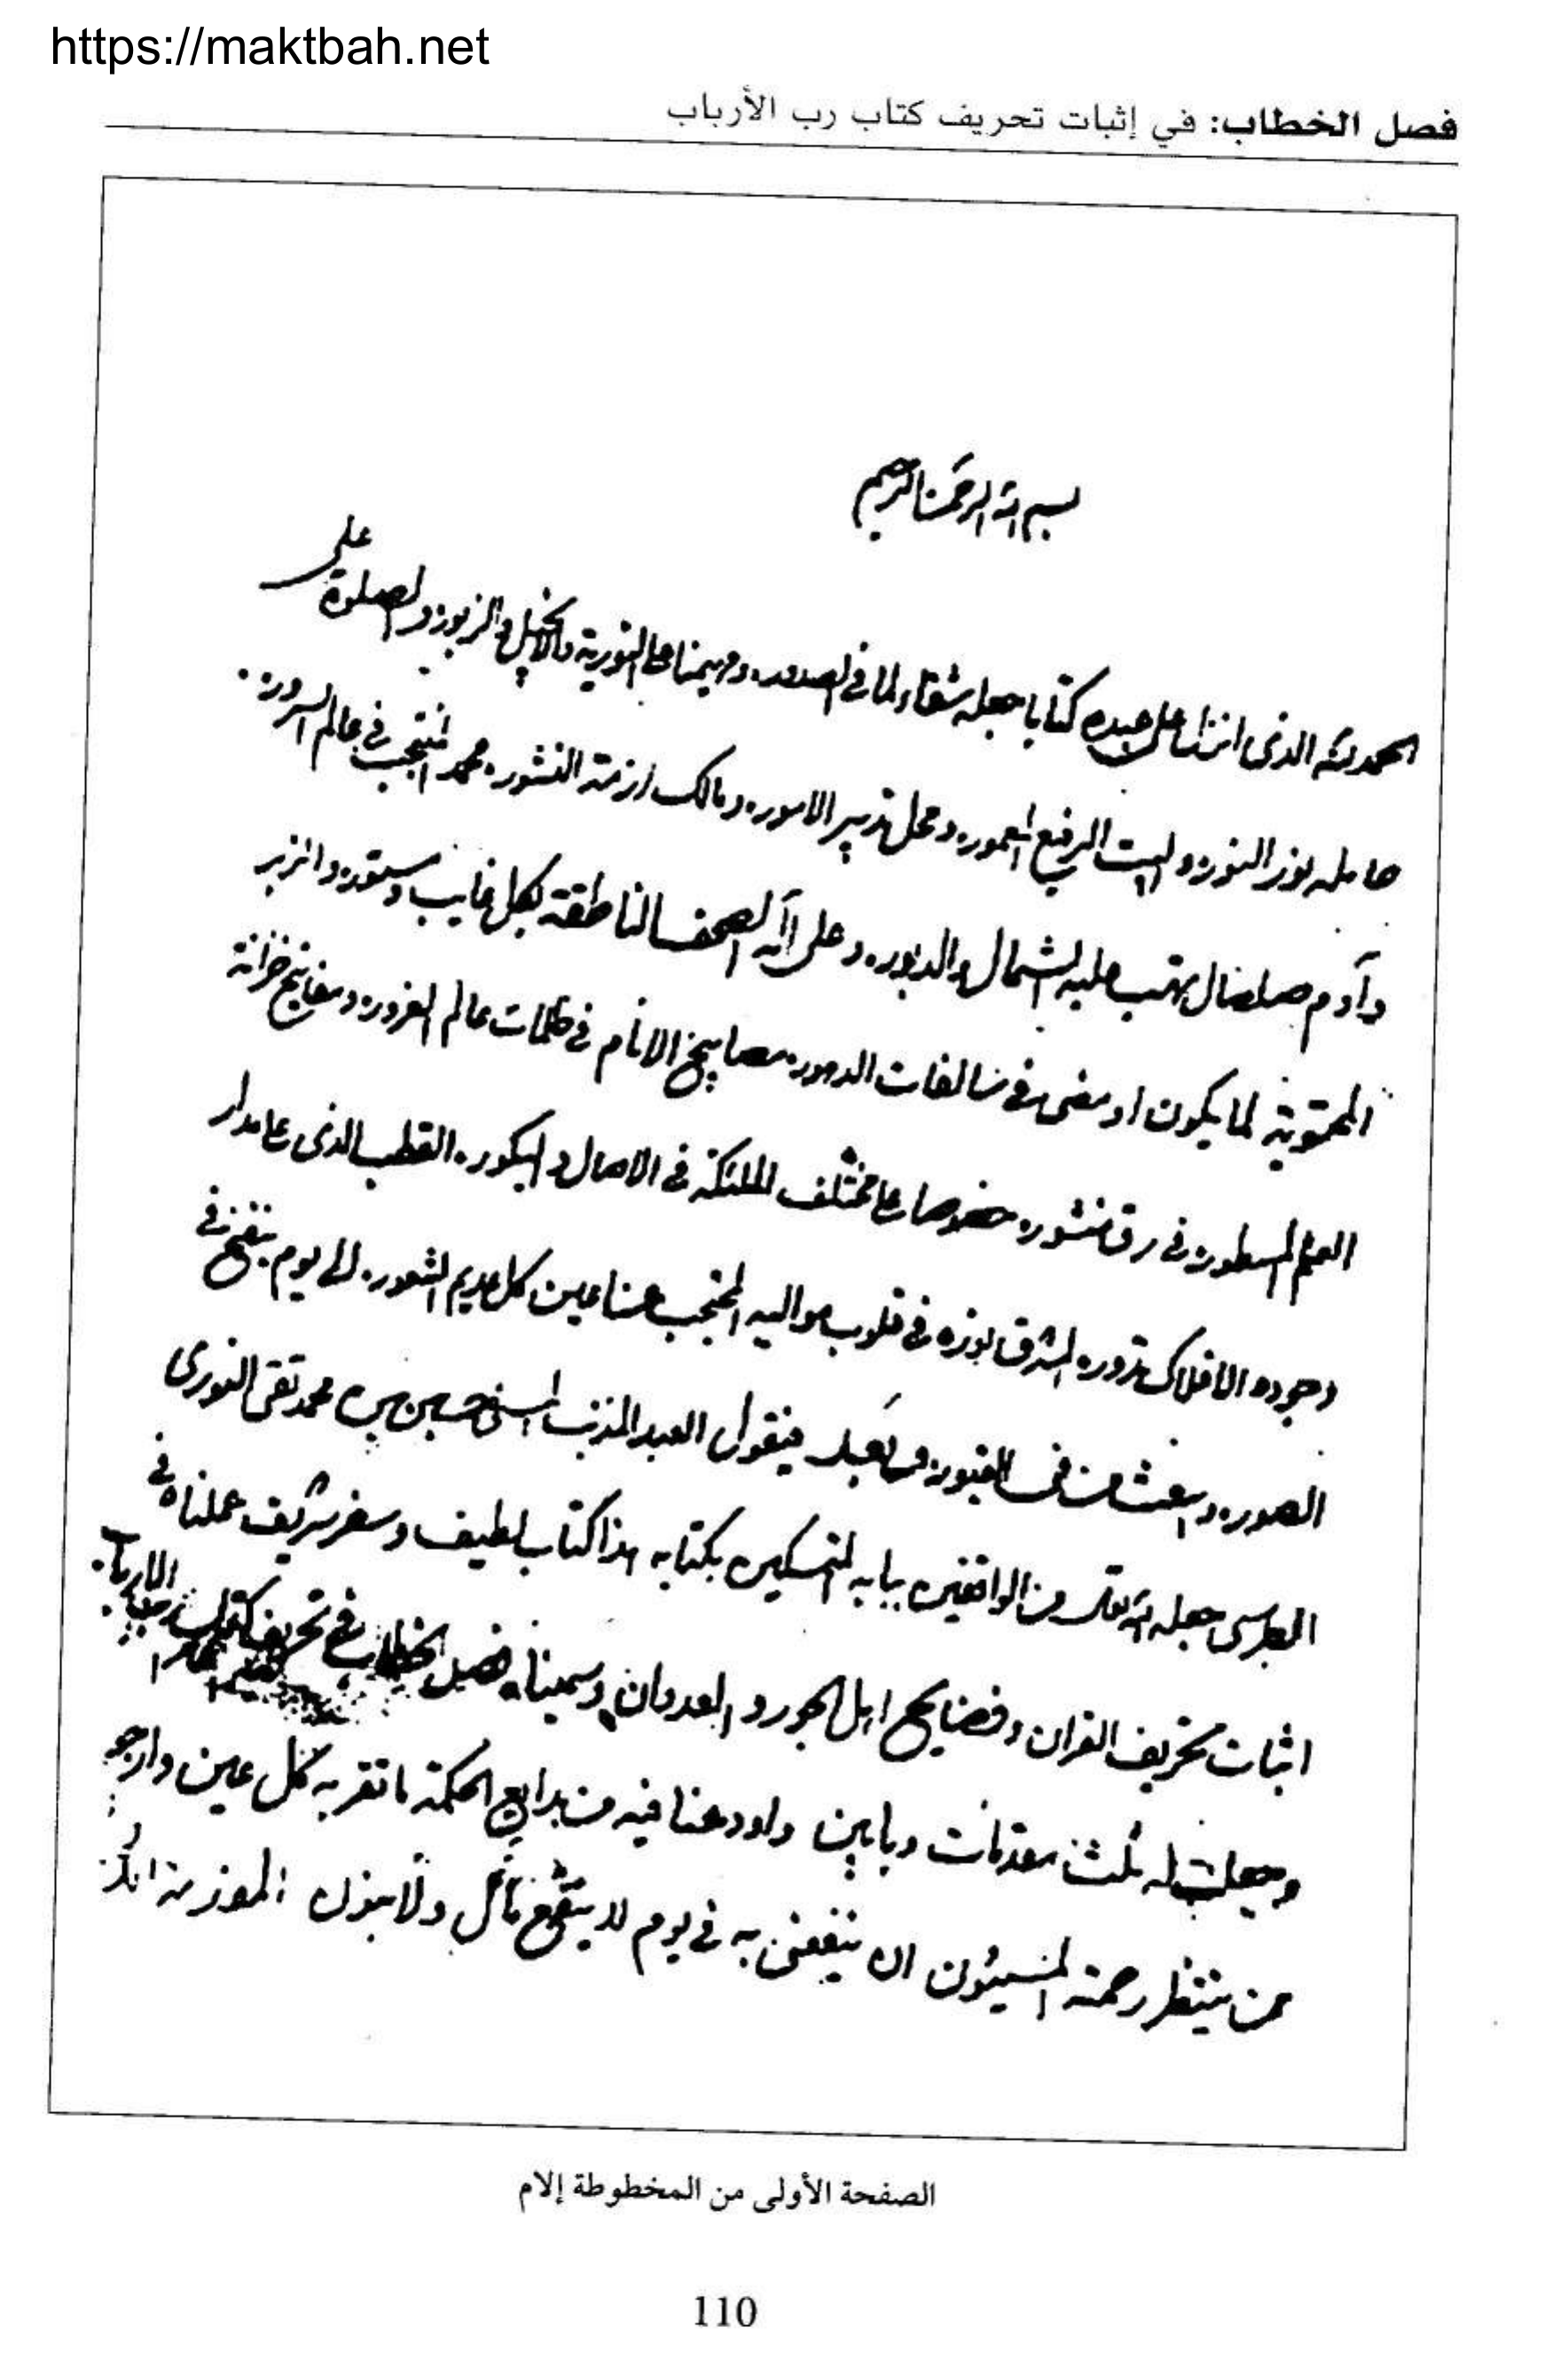 https://maktbah.net
فصل الخطاب: في إثبات تحريف كتاب رب الأرباب
بسم الله الرحمن الرحيم
الحمد لله الذى انزل على عبده كتابا جعله شفاء لما فى الصدور ومهيمنا على التورية والانجيل والزبور والصلوة على
حامله نور النور والبيت الرفيع المعمور ومحل تدبير الامور ومالك ازمة النشور محمد المنتجب فى عالم السرور
وآدم صلصال تهب عليه الشمال والدبور وعلى آله الصحف الناطقة بكل غايب ومستور والزبر
المحتوية لما يكون او مضى فى سالفات الدهور مصابيح الانام فى ظلمات عالم الغرور ومفاتيح خزانة
العلم المسطور فى رق منشور خصوصا على مختلف الملئكة فى الاصال والبكور القطب الذى على مدار
وجوده الافلاك تدور المشرق نوره فى قلوب مواليه المحتجب عن اعين كل عديم الشعور الى يوم ينفخ فى
الصور ويبعث من فى القبور وبعد فيقول العبد المذنب المسئ حسين بن محمد تقى النورى
الطبرسى جعله الله تعالى من الواقفين ببابه المتمسكين بكتابه هذا كتاب لطيف وسفر شريف عملناه فى
اثبات تحريف القران وفضايح اهل الجور والعدوان وسميناه فصل الخطاب فى تحريف كتاب رب الارباب
وجعلت له ثلث مقدمات وبابين واودعنا فيه من بدايع الحكمة ما تقر به كل عين وارجو
ممن ينتظر رحمة المسيئون ان ينفعنى به فى يوم لا ينفع مال ولا بنون
الصفحة الأولى من المخطوطة إلام
110